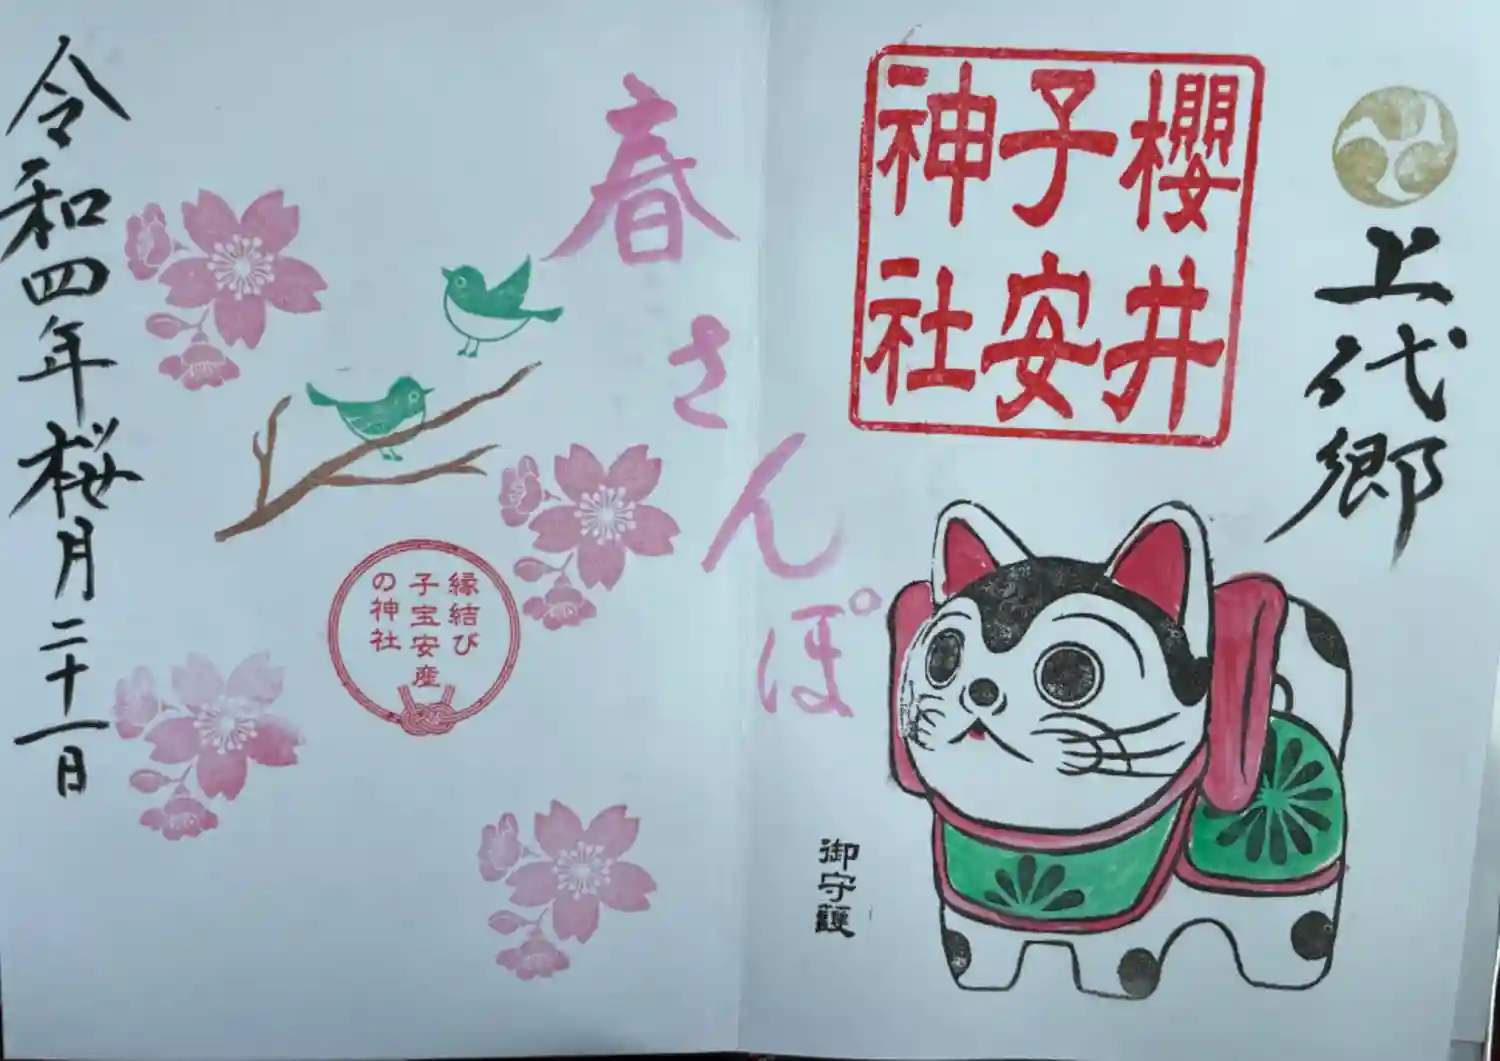 上代郷
櫻井
子安
神社
御守護
春さんぽ
縁結び
子宝安産
の神社
令和四年桜月二十一日